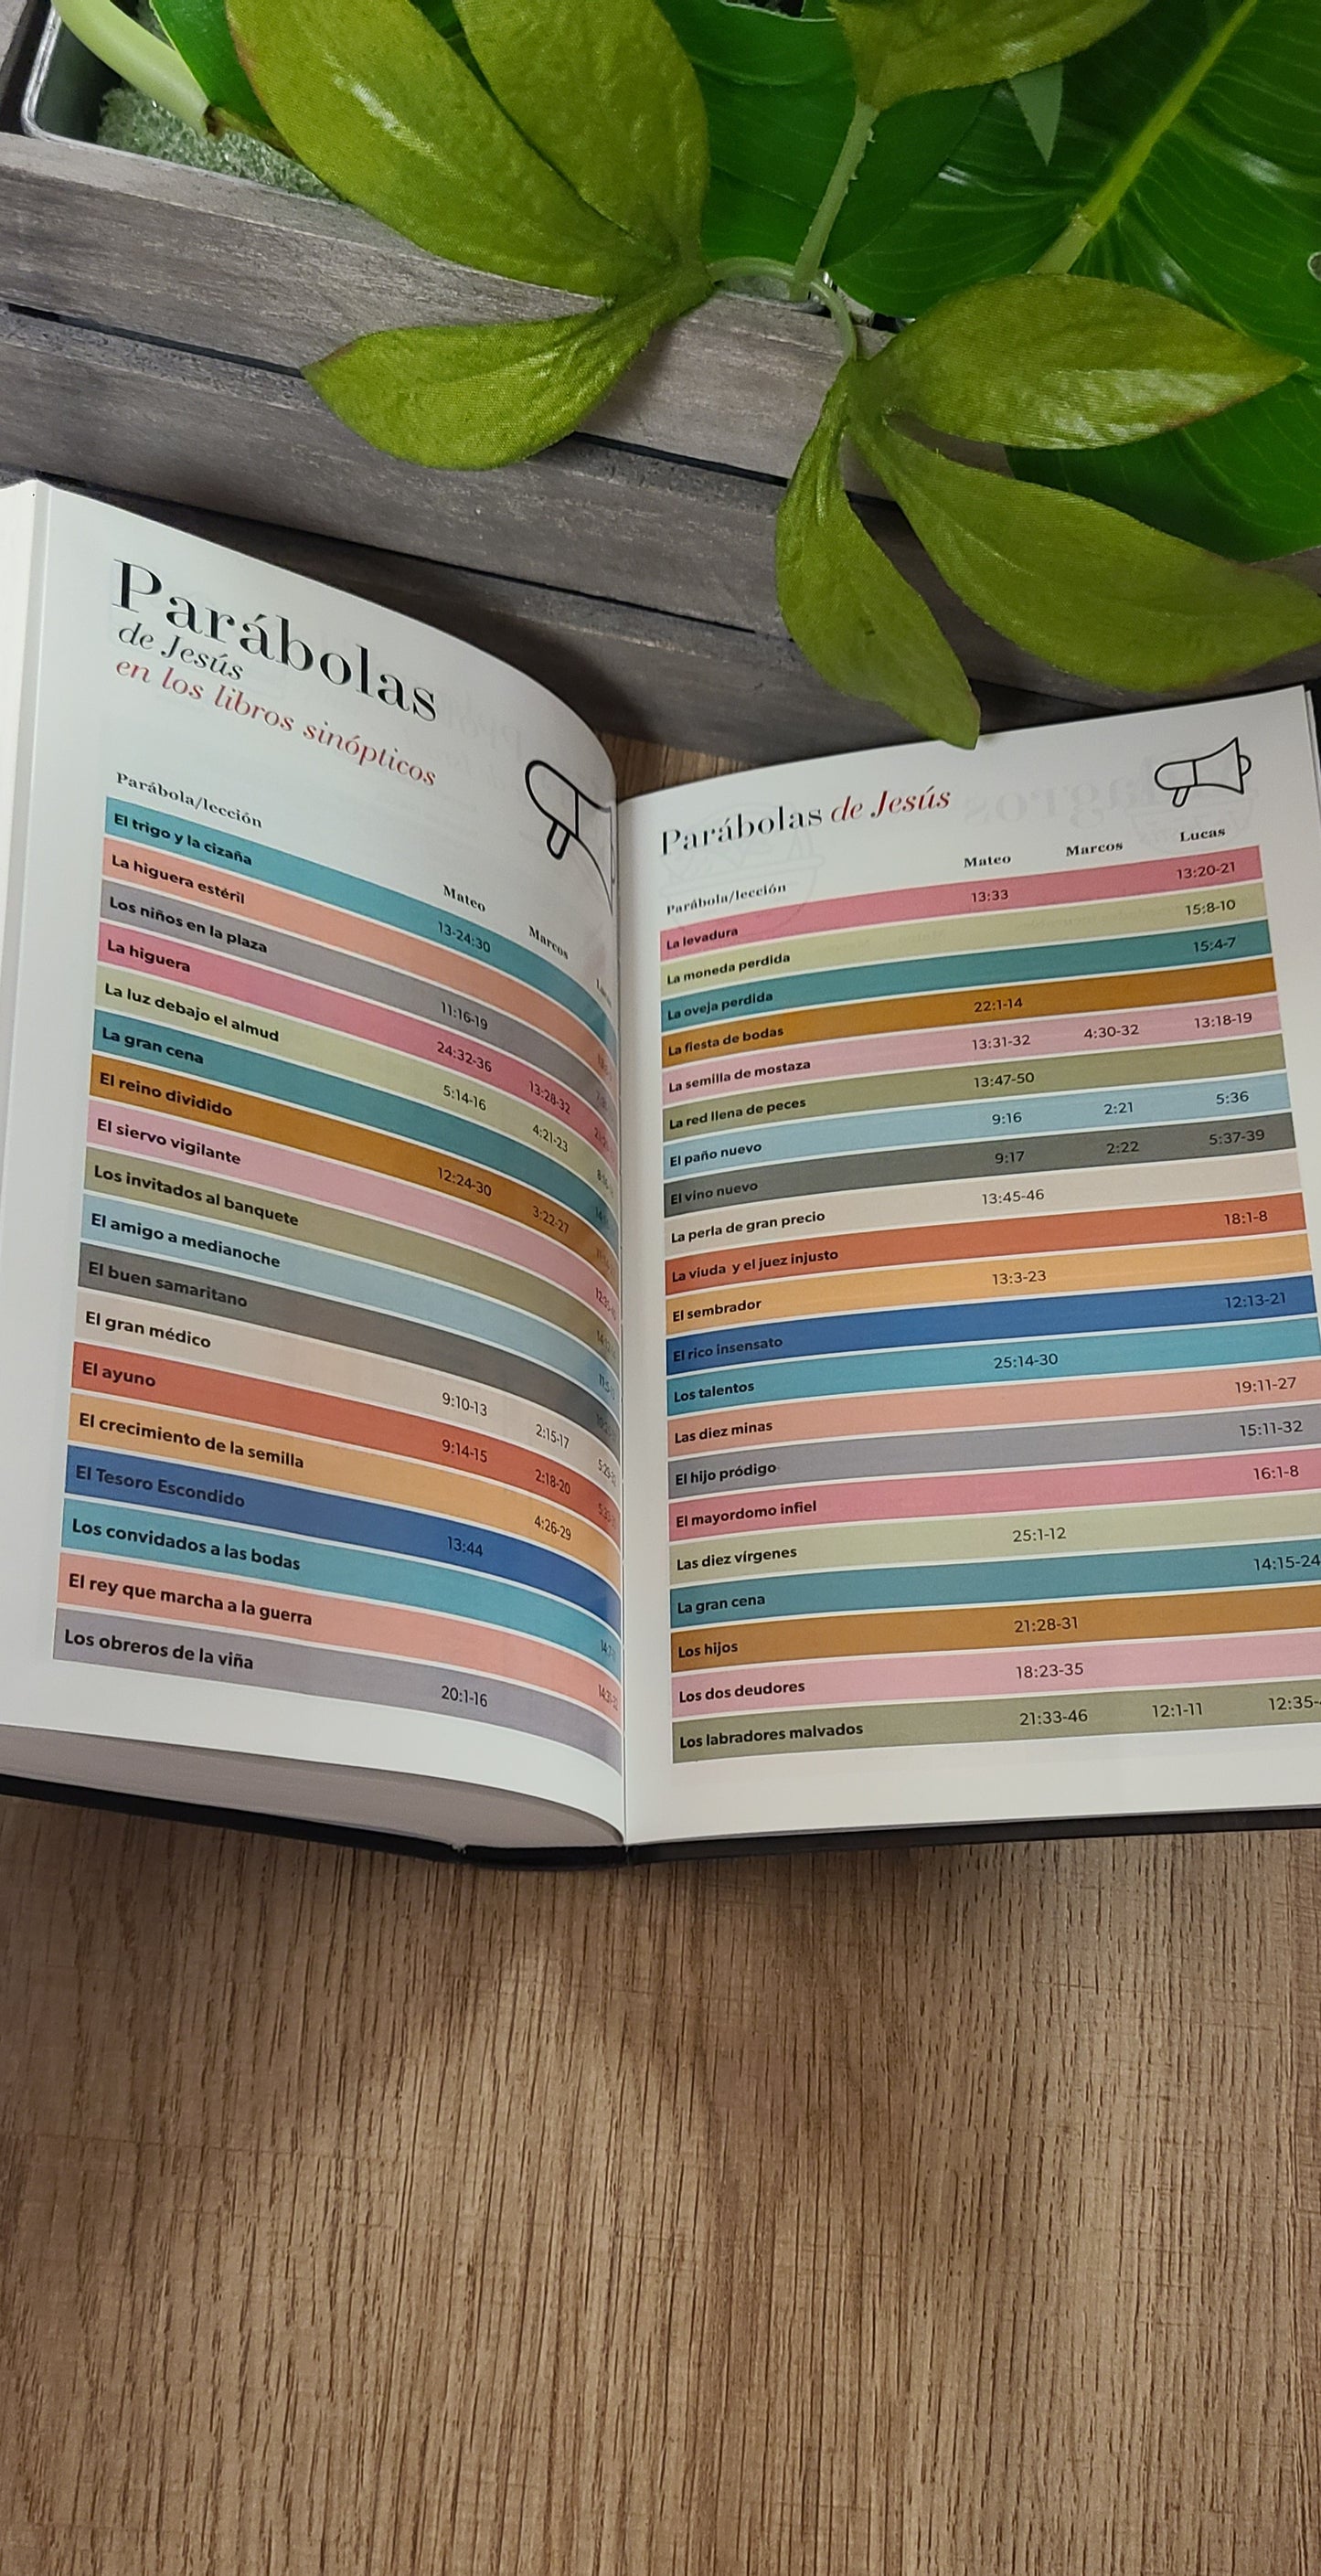 Parábolas
de Jesús
en los libros sinópticos
Parábola/lección Mateo Marcos
El trigo y la cizaña 13-24:30
La higuera estéril
Los niños en la plaza 11:16-19
La higuera 24:32-36 13:28-32
La luz debajo el almud 5:14-16 4:21-23
La gran cena
El reino dividido 12:24-30 3:22-27
El siervo vigilante
Los invitados al banquete
El amigo a medianoche
El buen samaritano
El gran médico 9:10-13 2:15-17
El ayuno 9:14-15 2:18-20
El crecimiento de la semilla 4:26-29
El Tesoro Escondido 13:44
Los convidados a las bodas
El rey que marcha a la guerra
Los obreros de la viña 20:1-16
Parábolas de Jesús
Parábola/lección Mateo Marcos Lucas
La levadura 13:33 13:20-21
La moneda perdida 15:8-10
La oveja perdida 15:4-7
La fiesta de bodas 22:1-14
La semilla de mostaza 13:31-32 4:30-32 13:18-19
La red llena de peces 13:47-50
El paño nuevo 9:16 2:21 5:36
El vino nuevo 9:17 2:22 5:37-39
La perla de gran precio 13:45-46
La viuda y el juez injusto 18:1-8
El sembrador 13:3-23
El rico insensato 12:13-21
Los talentos 25:14-30
Las diez minas 19:11-27
El hijo pródigo 15:11-32
El mayordomo infiel 16:1-8
Las diez vírgenes 25:1-12
La gran cena 14:15-24
Los hijos 21:28-31
Los dos deudores 18:23-35
Los labradores malvados 21:33-46 12:1-11 12:35-